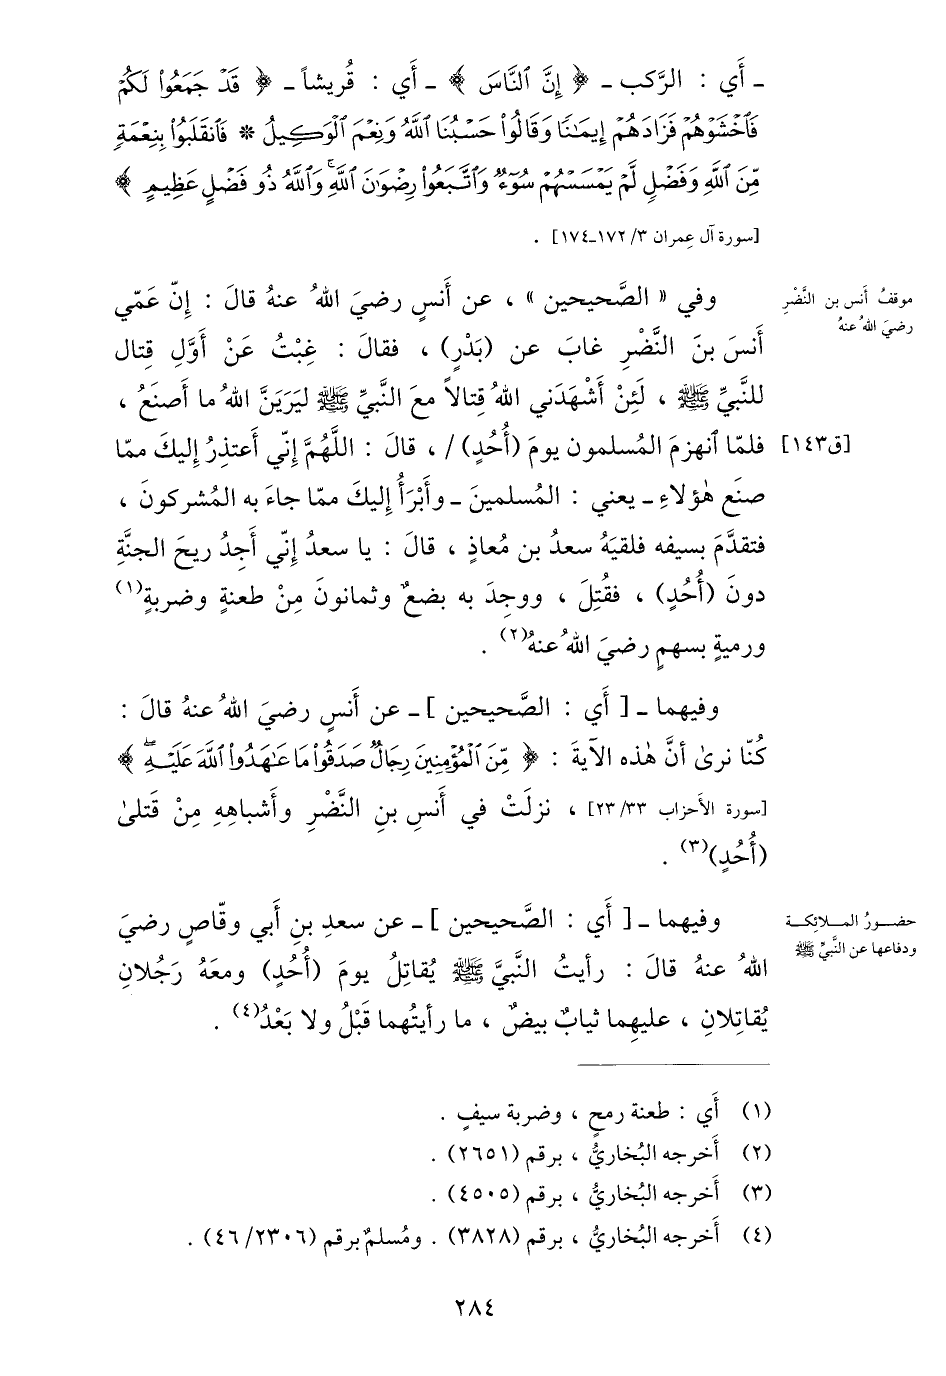 ـ أَي : الرَّكب ـ ﴿ إِنَّ ٱلنَّاسَ ﴾ ـ أَي : قُريشاً ـ ﴿ قَدْ جَمَعُوا۟ لَكُمْ
فَٱخْشَوْهُمْ فَزَادَهُمْ إِيمَـٰنًا وَقَالُوا۟ حَسْبُنَا ٱللَّهُ وَنِعْمَ ٱلْوَكِيلُ * فَٱنقَلَبُوا۟ بِنِعْمَةٍ
مِّنَ ٱللَّهِ وَفَضْلٍ لَّمْ يَمْسَسْهُمْ سُوٓءٌ وَٱتَّبَعُوا۟ رِضْوَٰنَ ٱللَّهِ ۗ وَٱللَّهُ ذُو فَضْلٍ عَظِيمٍ ﴾
[سورة آل عِمران ٣/ ١٧٢ـ١٧٤] .
موقفُ أَنس بن النَّضْرِ
رضيَ اللهُ عنهُ
وفي « الصَّحيحين » ، عن أَنسٍ رضيَ اللهُ عنهُ قالَ : إِنّ عَمّي
أَنسَ بنَ النَّضْرِ غابَ عن (بَدْرٍ) ، فقالَ : غِبْتُ عَنْ أَوَّلِ قِتال
للنَّبيِّ ﷺ ، لَئِنْ أَشْهَدَني اللهُ قِتالاً معَ النَّبيِّ ﷺ ليَرَيَنَّ اللهُ ما أَصنَعُ ،
[ق١٤٣] فلمّا ٱنهزمَ المُسلمون يومَ (أُحُدٍ) / ، قالَ : اللَّهُمَّ إِنّي أَعتذِرُ إِليكَ ممّا
صنَع هٰؤلاءِ ـ يعني : المُسلمينَ ـ وأَبْرَأُ إِليكَ ممّا جاءَ به المُشركونَ ،
فتقدَّمَ بسيفه فلقيَهُ سعدُ بن مُعاذٍ ، قالَ : يا سعدُ إِنّي أَجِدُ ريحَ الجنَّةِ
دونَ (أُحُدٍ) ، فقُتِلَ ، ووجِدَ به بضعٌ وثمانونَ مِنْ طعنةٍ وضربةٍ(١)
ورميةٍ بسهمٍ رضيَ اللهُ عنهُ(٢) .
وفيهما ـ [ أَي : الصَّحيحين ] ـ عن أَنسٍ رضيَ اللهُ عنهُ قالَ :
كُنّا نرىٰ أنَّ هٰذه الآيةَ : ﴿ مِّنَ ٱلْمُؤْمِنِينَ رِجَالٌ صَدَقُوا۟ مَا عَـٰهَدُوا۟ ٱللَّهَ عَلَيْهِ ۖ ﴾
[سورة الأَحزاب ٣٣/ ٢٣] ، نزلَتْ في أَنسِ بنِ النَّضْرِ وأَشباهِهِ مِنْ قَتلىٰ
(أُحُدٍ)(٣) .
حضـورُ المـلائِكـة
ودفاعها عن النَّبيِّ ﷺ
وفيهما ـ [ أَي : الصَّحيحين ] ـ عن سعدِ بنِ أَبي وقّاصٍ رضيَ
اللهُ عنهُ قالَ : رأَيتُ النَّبيَّ ﷺ يُقاتِلُ يومَ (أُحُدٍ) ومعَهُ رَجُلانِ
يُقاتِلانِ ، عليهِما ثيابٌ بيضٌ ، ما رأَيتُهما قَبْلُ ولا بَعْدُ(٤) .
(١) أَي : طعنة رمحٍ ، وضربة سيفٍ .
(٢) أَخرجه البُخاريُّ ، برقم (٢٦٥١) .
(٣) أَخرجه البُخاريُّ ، برقم (٤٥٠٥) .
(٤) أَخرجه البُخاريُّ ، برقم (٣٨٢٨) . ومُسلمٌ برقم (٢٣٠٦/ ٤٦) .
٢٨٤